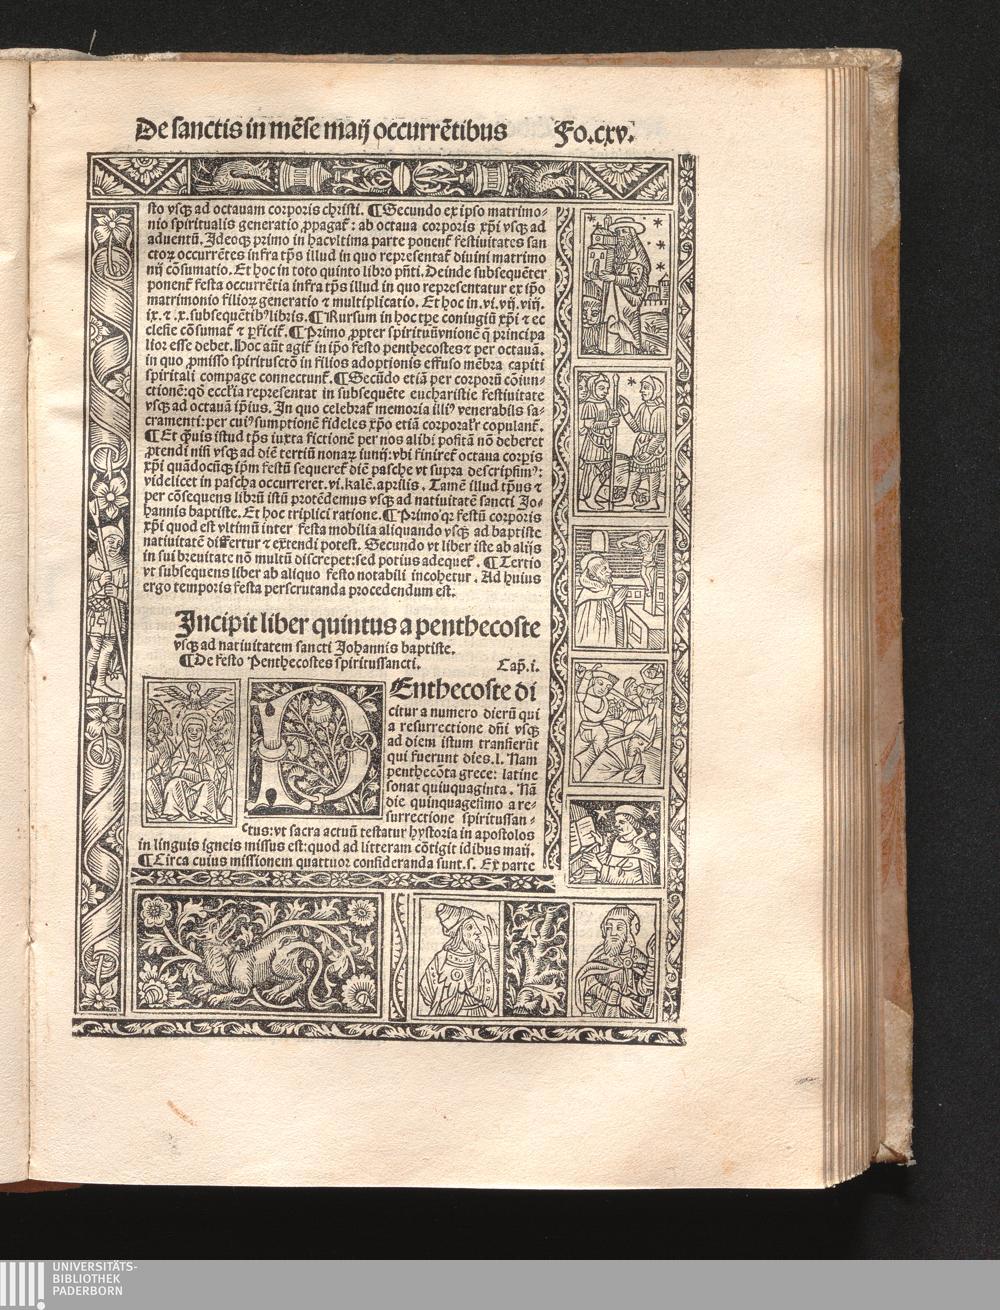 De sanctis in mēse maij occurrētibus Fo.cxv.
sto vsqꝫ ad octauam corporis christi. ¶ Secundo ex ipso matrimo-
nio spiritualis generatio ꝓpagat᷑: ab octaua corporis xp̄i vsqꝫ ad
aduentū. Ideoqꝫ primo in hac vltima parte ponent᷑ festiuitates san
ctoꝝ occurrētes infra tp̄s illud in quo representat᷑ diuini matrimo
nij cōsumatio. Et hoc in toto quinto libro pn̄ti. Deinde subsequēter
ponent᷑ festa occurrētia infra tp̄s illud in quo representatur ex ip̄o
matrimonio filioꝝ generatio ⁊ multiplicatio. Et hoc in .vi. vij. viij.
ix. ⁊ .x. subsequētibꝰ libris. ¶ Rursum in hoc tp̄e coniugiū xp̄i ⁊ ec
clesie cōsumat᷑ ⁊ ꝑficit᷑. ¶ Primo ꝓpter spirituū vnionē q̄ principa
lior esse debet. Hoc aūt agit᷑ in ip̄o festo penthecostes ⁊ per octauā.
in quo ꝓmisso spiritusctō in filios adoptionis effuso mēbra capiti
spiritali compage connectunt᷑. ¶ Secūdo etiā per corporū cōiun-
ctionē: qđ eccl̄ia representat in subsequēte eucharistie festiuitate
vsqꝫ ad octauā ip̄ius. In quo celebrat᷑ memoria illiꝰ venerabilis sa-
cramenti: per cuiꝰ sumptionē fideles xp̄o etiā corporal'r copulant᷑.
¶ Et q̄uis istud tp̄s iuxta fictionē per nos alibi positā nō deberet
ꝓtendi nisi vsqꝫ ad diē tertiū nonaꝝ iunij: vbi finiret᷑ octaua corpis
xp̄i quādocūqꝫ ip̄m festū sequeret᷑ diē pasche vt supra descripsimꝰ:
videlicet in pascha occurreret .vi. kalē. aprilis. Tamē illud tp̄us ⁊
per cōsequens librū istū protēdemus vsqꝫ ad natiuitatē sancti Jo-
hannis baptiste. Et hoc triplici ratione. ¶ Primo qr festū corporis
xp̄i quod est vltimū inter festa mobilia aliquando vsqꝫ ad baptiste
natiuitatē differtur ⁊ extendi potest. Secundo vt liber iste ab alijs
in sui breuitate nō multū discrepet: sed potius adequet᷑. ¶ Tertio
vt subsequens liber ab aliquo festo notabili incohetur. Ad huius
ergo temporis festa perscrutanda procedendum est.
Incipit liber quintus a penthecoste
vsqꝫ ad natiuitatem sancti Johannis baptiste.
¶ De festo Penthecostes spiritussancti. Cap̄.i.
PEnthecoste di
citur a numero dierū qui
a resurrectione dn̄i vsqꝫ
ad diem istum transierūt
qui fuerunt dies .l. Nam
penthecōta grece: latine
sonat quinquaginta. Nā
die quinquagesimo a re-
surrectione spiritussan-
ctus: vt sacra actuū testatur hystoria in apostolos
in linguis igneis missus est: quod ad litteram cōtigit idibus maij.
¶ Circa cuius missionem quattuor consideranda sunt. s. Ex parte
UNIVERSITÄTS-
BIBLIOTHEK
PADERBORN